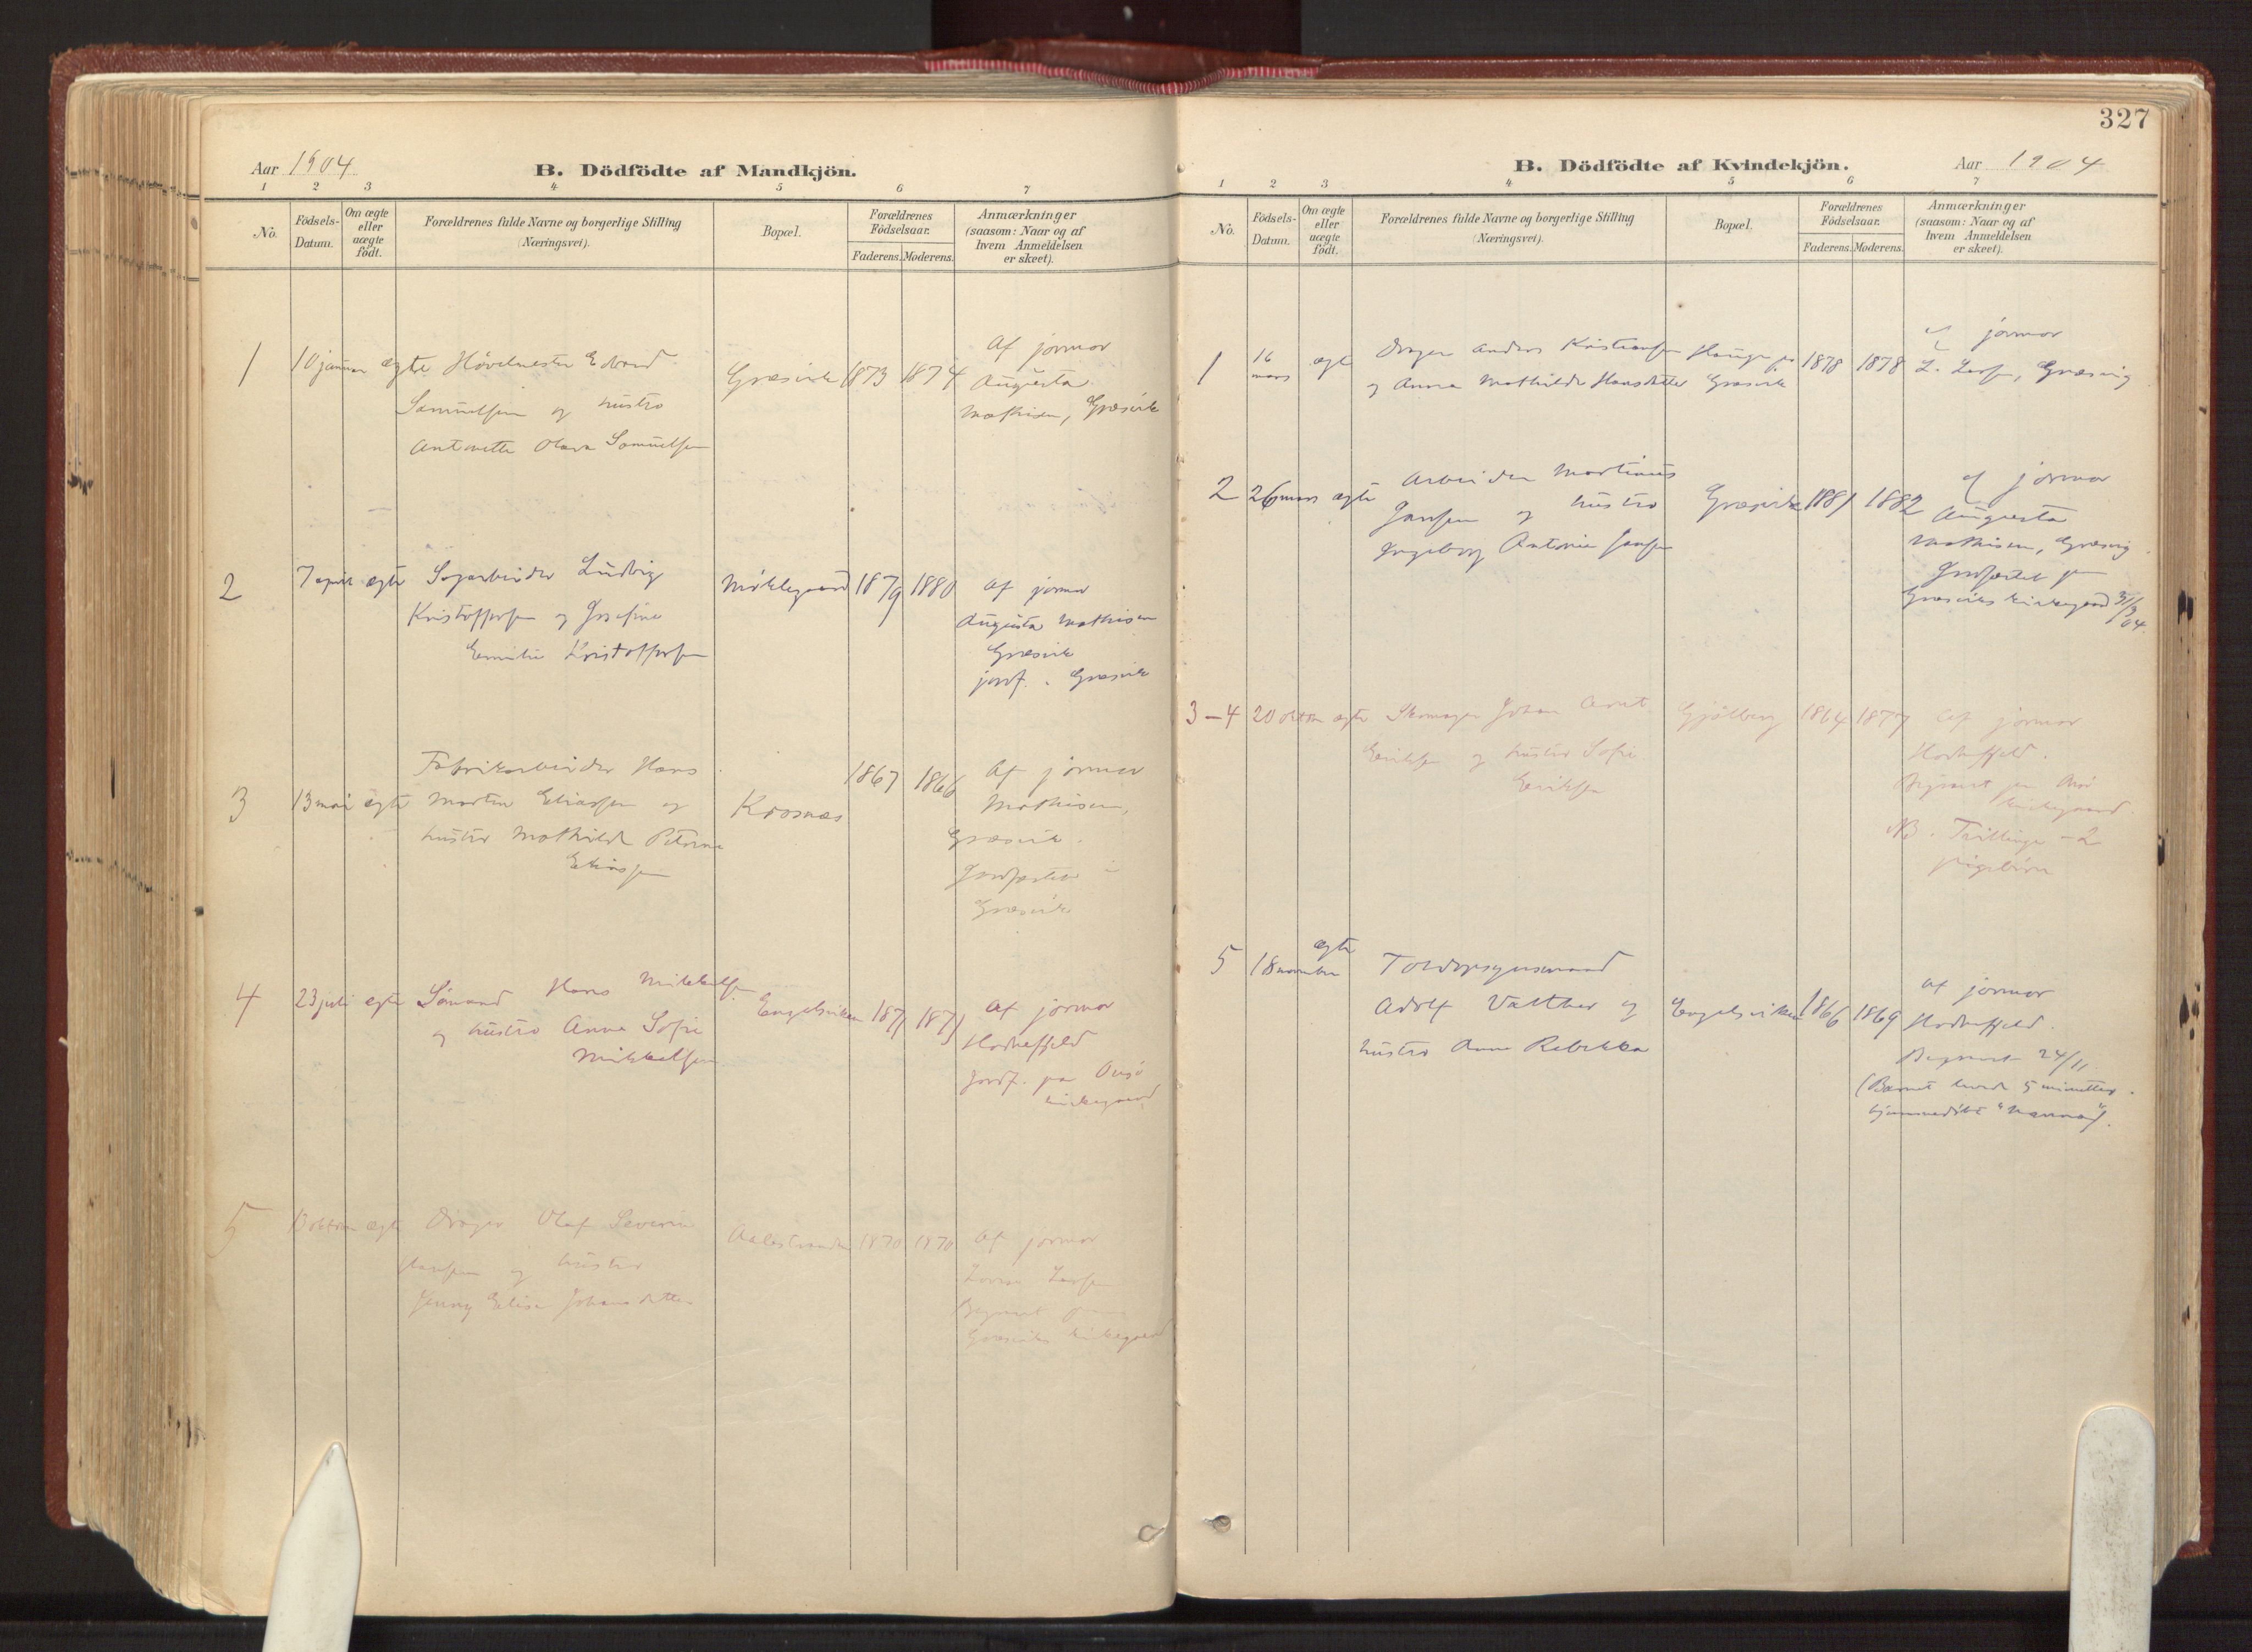 Aar 1904
B. Dödfödte af Mandkjön.
1 2 3 4 5 6 7
No.
Födsels-Datum.
Om ægte eller uægte født.
Forældrenes fulde Navne og borgerlige Stilling
(Næringsvei).
Bopæl.
Forældrenes Födselsaar.
Faderens. Moderens.
Anmærkninger
(saasom: Naar og af
hvem Anmeldelsen
er skeet).
1 10 januar ægte Høvelmester Edvard Græsvik 1873 1874 Af jormor
Samuelsen og hustro Augusta
Antonette Olava Samuelsen Mathisen, Græsvik
2 7 april ægte Sagarbeider Ludvig Møklegaard 1879 1880 Af jormor
Kristoffersen og Josefine Augusta Mathisen
Emilie Kristoffersen Græsvik
jordf. i Græsvik
3 13 mai ægte Fabrikarbeider Hans Krosnæs 1867 1866 Af jormor
Martin Eliassen og Mathisen,
hustro Mathilde Petrine Græsvik.
Eliassen Jordfæstet i
Græsvik
4 23 juli ægte Sömand Hans Mikkelsen Engelsviken 1871 1873 Af jormor
og hustro Anna Sofie Hodneffjeld
Mikkelsen Jordf. paa Onsö
kirkegaard
5 oktober ægte Drager Olaf Severin Aalestranden 1870 1870 Af jormor
Hansen og hustro Lovise Larsen
Jenny Elise Johansdatter Begravet paa
Græsviks kirkegaard
327
B. Dödfödte af Kvindekjön.
Aar 1904
1 2 3 4 5 6 7
No.
Födsels-Datum.
Om ægte eller uægte födt.
Forældrenes fulde Navne og borgerlige Stilling
(Næringsvei).
Bopæl.
Forældrenes Födselsaar.
Faderens. Moderens.
Anmærkninger
(saasom: Naar og af
hvem Anmeldelsen
er skeet).
1 16 mars ægte Drager Anders Kristiansen Hauge pr 1878 1878 af jormor
og Anna Mathilde Hansdatter Græsvik L. Larsen, Græsvig
2 26 mars ægte Arbeider Martinus Græsvik 1881 1882 af jormor
Jansen og hustro Augusta
Ingeborg Antonie Jansen Mathisen, Græsvig
Jordfæstet paa
Græsviks kirkegaard 31/3 04.
3-4 20 oktbr ægte Skomager Johan Arnt Gjölberg 1864 1877 Af jormor
Eriksen og hustro Sofie Hodneffjeld.
Eriksen Begravet paa Onsö
kirkegaard.
NB. Tvillinger - 2
pigebörn
5 18 november ægte Toldopsynsmand
Adolf Valther og Engelsviken 1866 1869 Af jormor
hustro Anna Rebekka Hodneffjeld.
Begravet 24/11
(Barnet levede 5 minutter.
hjemmedöbt "Nanna").